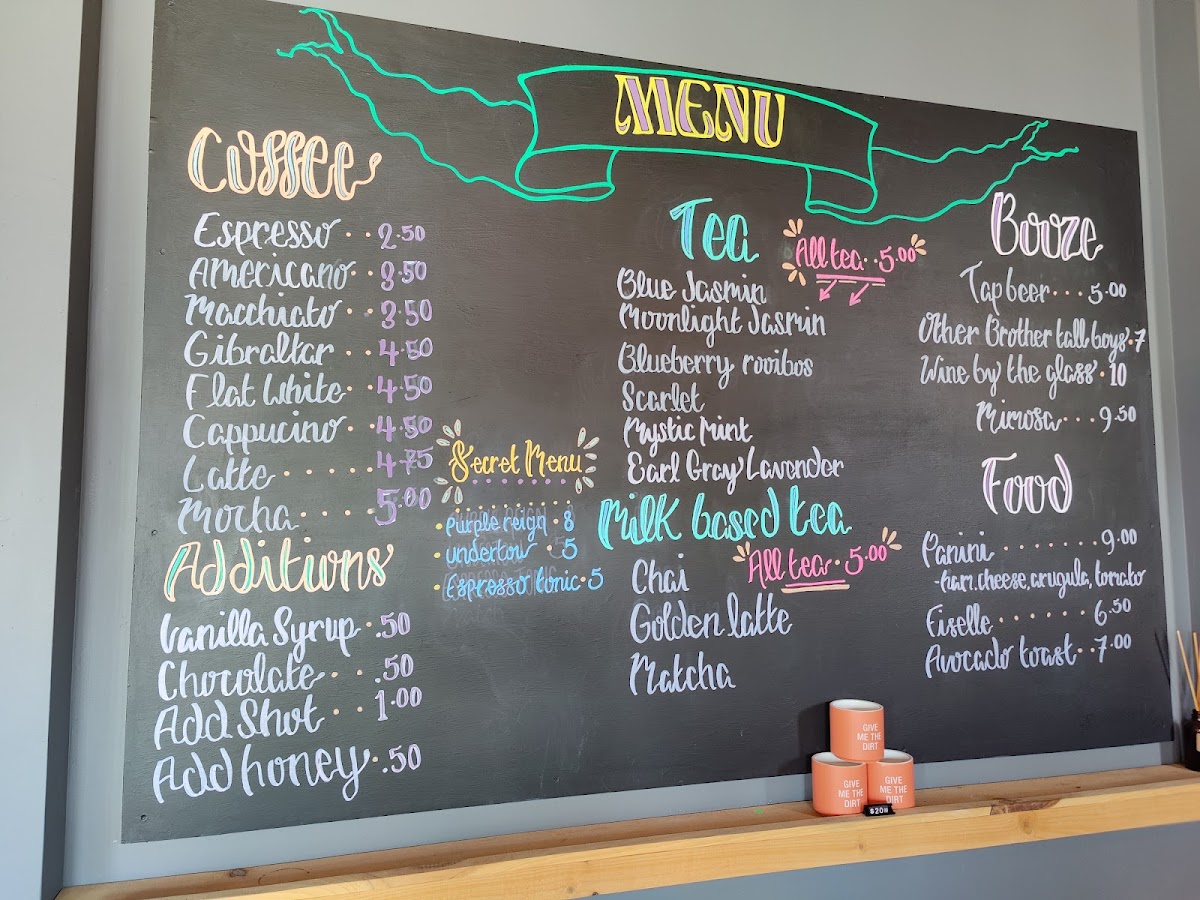 MENU
Coffee
Espresso . . 2.50
Americano . . 3.50
Macchiato . . 3.50
Gibraltar . . . 4.50
Flat White . . 4.50
Cappucino . . 4.50
Latte . . . . . . 4.75
Mocha . . . . . 5.00
Additions
Vanilla Syrup . .50
Chocolate . . . .50
Add Shot . . . 1.00
Add honey . .50
Secret Menu
Purple reign . 8
undertow 5
Espresso tonic . 5
Tea
All tea . . 5.00
Blue Jasmin
Moonlight Jasmin
Blueberry rooibos
Scarlet
Mystic Mint
Earl Gray Lavender
Milk based tea
All tea . 5.00
Chai
Golden latte
Matcha
Booze
Tap beer . . . 5.00
Other Brother tall boys . 7
Wine by the glass . 10
Mimosa . . . 9.50
Food
Panini . . . . . . . 9.00
- ham, cheese, arugula, tomato
Fiselle . . . . . . 6.50
Avocado toast . . 7.00
GIVE
ME THE
DIRT
GIVE
ME THE
DIRT
GIVE
ME THE
DIRT